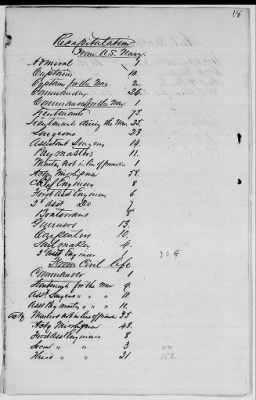 18
Recapitulation
From U.S. Navy.
Admiral 1
Captains 10.
Captains for the War 2
Commanders 24.
Commanders for the War 1
Lieutenants
Lieutenants during the War 25.
Surgeons 23
Assistant Surgeons 14.
Paymasters 11.
Masters not in line of promotion
Actg Midshipmen 58.
Chief Engineers 8
First Asst Engineers 6
2d Asst Do 7
Boatswains 8
Gunners 13.
Carpenters 10.
Sail makers 4.
3d Asst Engineers
From Civil Life
Commander
Lieuts for the War 9.
Asst Surgeons " " 10.
Asst Paymasters " " 11.
Masters not in line of promotion 35
Actg Midshipmen 48.
First Asst Engineers 8
Second " " 3
Third " " 31.